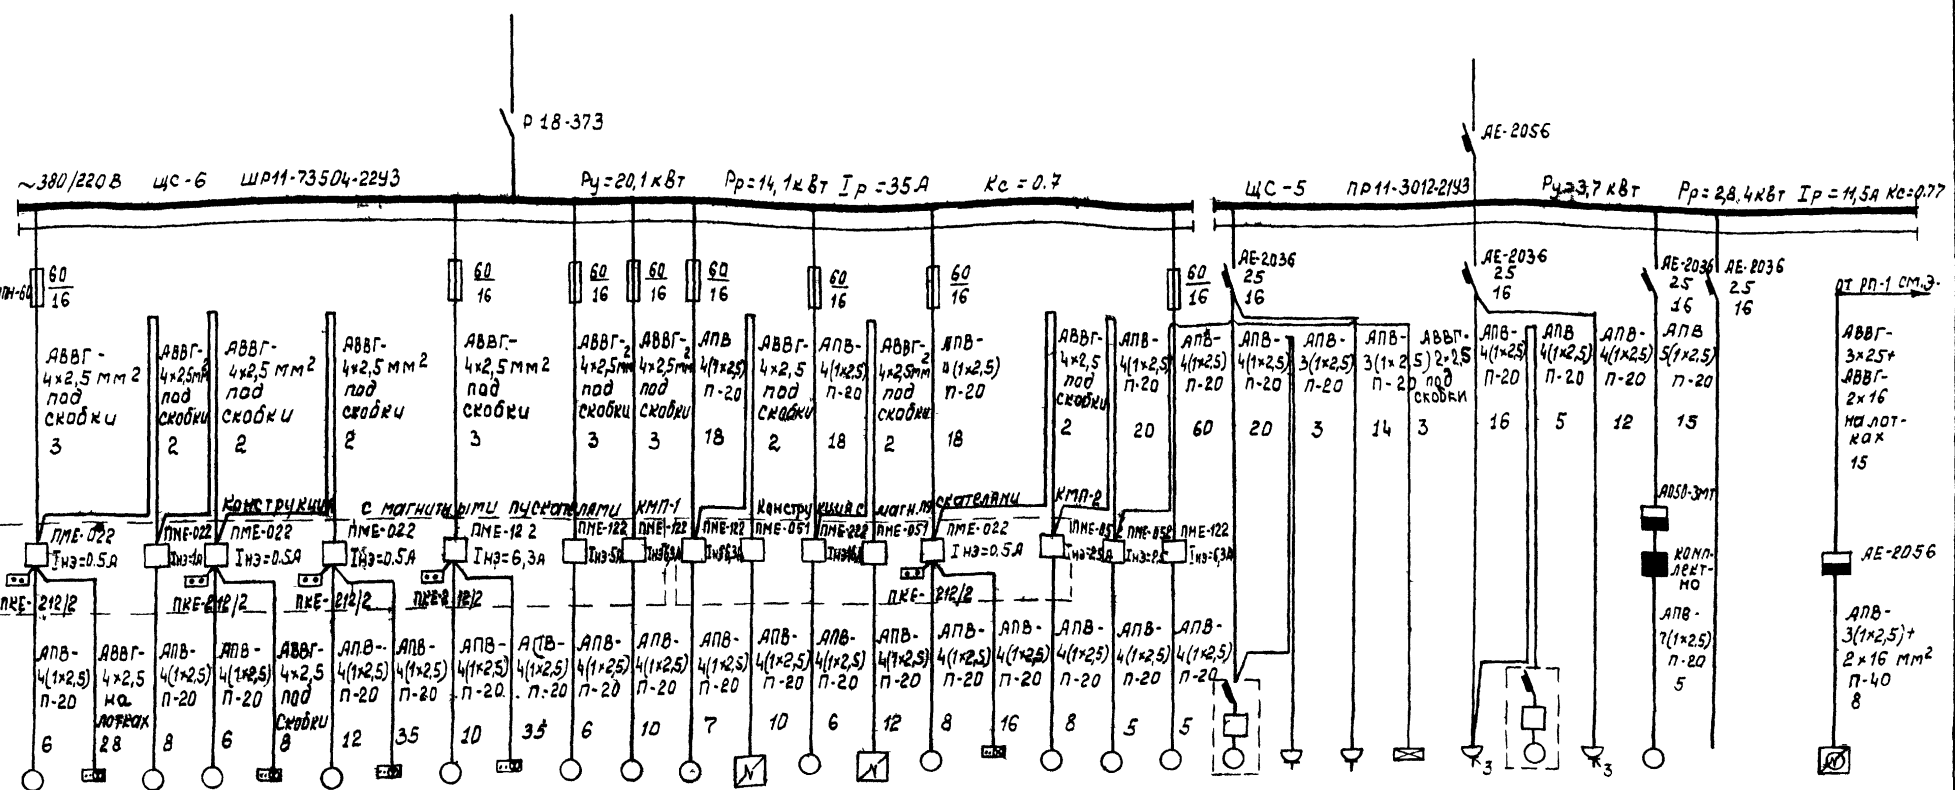 Р 18-373
АЕ-2056
~380/220В ЩС-6 ШР11-73504-22У3 Ру=20,1кВт Рр=14,1кВт Iр=35А Кс=0.7
ЩС-5 ПР11-3012-21У3 Ру=3,7 кВт Рр=2,8.4кВт Iр=11,5А Кс=0.77
60
16
60
16
60
16
60
16
60
16
60
16
60
16
60
16
АЕ-2036
25
16
АЕ-2036
25
16
АЕ-2036
25
16
АЕ-2036
25
16
от РП-1 см.Э-
АВВГ-
4×2,5 мм²
под
скобки
3
АВВГ-
4×2,5мм²
под
скобки
2
АВВГ-
4×2,5 мм²
под
скобки
2
АВВГ-
4×2,5 мм²
под
скобки
2
АВВГ-
4×2,5 мм²
под
скобки
3
АВВГ-
4×2,5мм²
под
скобки
3
АВВГ-
4×2,5мм²
под
скобки
3
АПВ
4(1×2,5)
П-20
18
АВВГ-
4×2,5
под
скобки
2
АПВ-
4(1×2,5)
П-20
18
АВВГ-
4×2,5мм²
под
скобки
2
АПВ-
4(1×2,5)
П-20
18
АВВГ-
4×2,5
под
скобки
2
АПВ-
4(1×2,5)
П-20
20
АПВ-
4(1×2,5)
П-20
60
АПВ-
4(1×2,5)
П-20
20
АПВ-
3(1×2,5)
П-20
3
АПВ-
3(1×2,5)
П-20
14
АВВГ-
2×2,5
под
скобки
3
АПВ-
4(1×2,5)
П-20
16
АПВ
4(1×2,5)
П-20
5
АПВ-
4(1×2,5)
П-20
12
АПВ
5(1×2,5)
П-20
15
АВВГ-
3×25+
АВВГ-
2×16
на лот-
ках
15
Конструкция с магнитными пускателями КМП-1
Конструкция с магн. пускателями КМП-2
ПМЕ-022
Iнэ=0.5А
ПМЕ-022
ПМЕ-022
Iнэ=0.5А
ПМЕ-022
Iнэ=0.5А
ПМЕ-122
Iнэ=6,3А
ПМЕ-122
ПМЕ-122
ПМЕ-122
ПМЕ-051
ПМЕ-222
ПМЕ-051
ПМЕ-022
Iнэ=0,5А
ПМЕ-122
Iнэ=6,3А
А050-3МТ
комп-
лект-
но
АЕ-2056
ПКЕ-212/2
ПКЕ-212/2
ПКЕ-212/2
ПКЕ-212/2
ПКЕ-212/2
АПВ-
4(1×2,5)
П-20
6
АВВГ-
4×2,5
на
лотках
28
АПВ-
4(1×2,5)
П-20
8
АПВ-
4(1×2,5)
П-20
6
АВВГ-
4×2,5
под
скобки
8
АПВ-
4(1×2,5)
П-20
12
АПВ-
4(1×2,5)
П-20
35
АПВ-
4(1×2,5)
П-20
10
АПВ-
4(1×2,5)
П-20
35
АПВ-
4(1×2,5)
П-20
6
АПВ-
4(1×2,5)
П-20
10
АПВ-
4(1×2,5)
П-20
7
АПВ-
4(1×2,5)
П-20
10
АПВ-
4(1×2,5)
П-20
6
АПВ-
4(1×2,5)
П-20
12
АПВ-
4(1×2,5)
П-20
8
АПВ-
4(1×2,5)
П-20
16
АПВ-
4(1×2,5)
П-20
8
АПВ-
4(1×2,5)
П-20
5
АПВ-
4(1×2,5)
П-20
5
АПВ-
7(1×2,5)
П-20
5
АПВ-
3(1×2,5)+
2×16 мм²
П-40
8
3
3